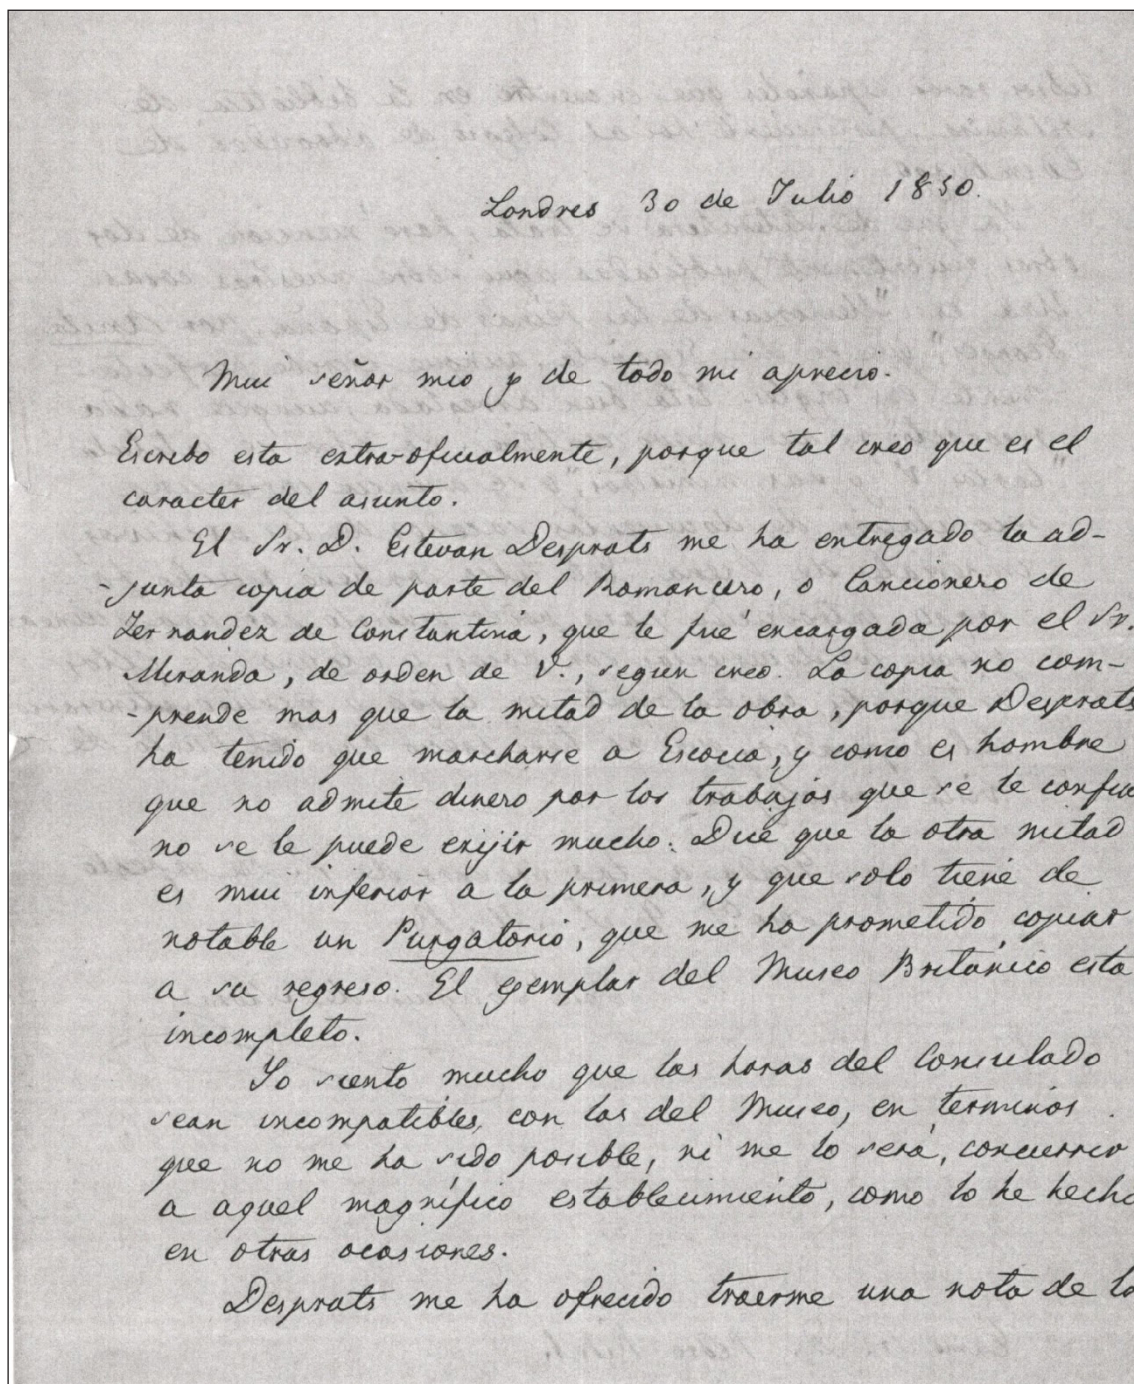 Londres 30 de Julio 1850.
Mui señor mio y de todo mi aprecio.
Escribo esta extra-oficialmente, porque tal creo que es el
caracter del asunto.
El Sr. D. Estevan Desprats me ha entregado la ad-
-junta copia de parte del Romancero, o Cancionero de
Fernandez de Constantina, que le fué encargada por el Sr.
Miranda, de orden de V., segun creo. La copia no com-
-prende mas que la mitad de la obra, porque Desprats
ha tenido que marcharse a Escocia, y como es hombre
que no admite dinero por los trabajos que se le confia
no se le puede exijir mucho. Dice que la otra mitad
es mui inferior a la primera, y que solo tiene de
notable un Purgatorio, que me ha prometido copiar
a su regreso. El ejemplar del Museo Británico esta
incompleto.
Yo siento mucho que las horas del Consulado
sean incompatibles con las del Museo, en terminos
que no me ha sido posible, ni me lo será, concurrir
a aquel magnífico establecimiento, como lo he hecho
en otras ocasiones.
Desprats me ha ofrecido traerme una nota de lo